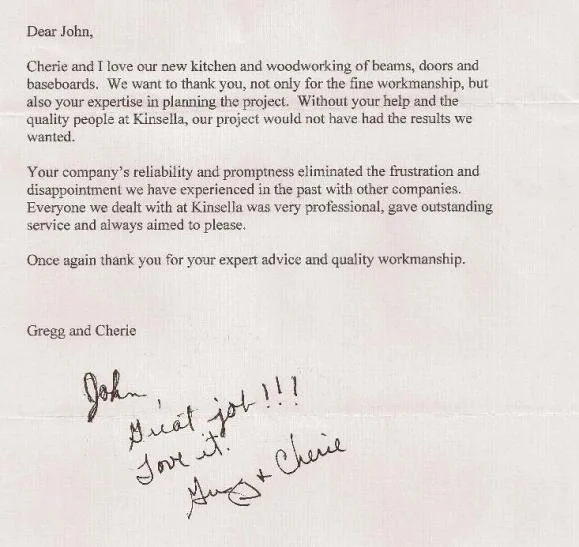 Dear John,
Cherie and I love our new kitchen and woodworking of beams, doors and
baseboards. We want to thank you, not only for the fine workmanship, but
also your expertise in planning the project. Without your help and the
quality people at Kinsella, our project would not have had the results we
wanted.
Your company's reliability and promptness eliminated the frustration and
disappointment we have experienced in the past with other companies.
Everyone we dealt with at Kinsella was very professional, gave outstanding
service and always aimed to please.
Once again thank you for your expert advice and quality workmanship.
Gregg and Cherie
John,
Great job!!!
Love it!
Gregg + Cherie